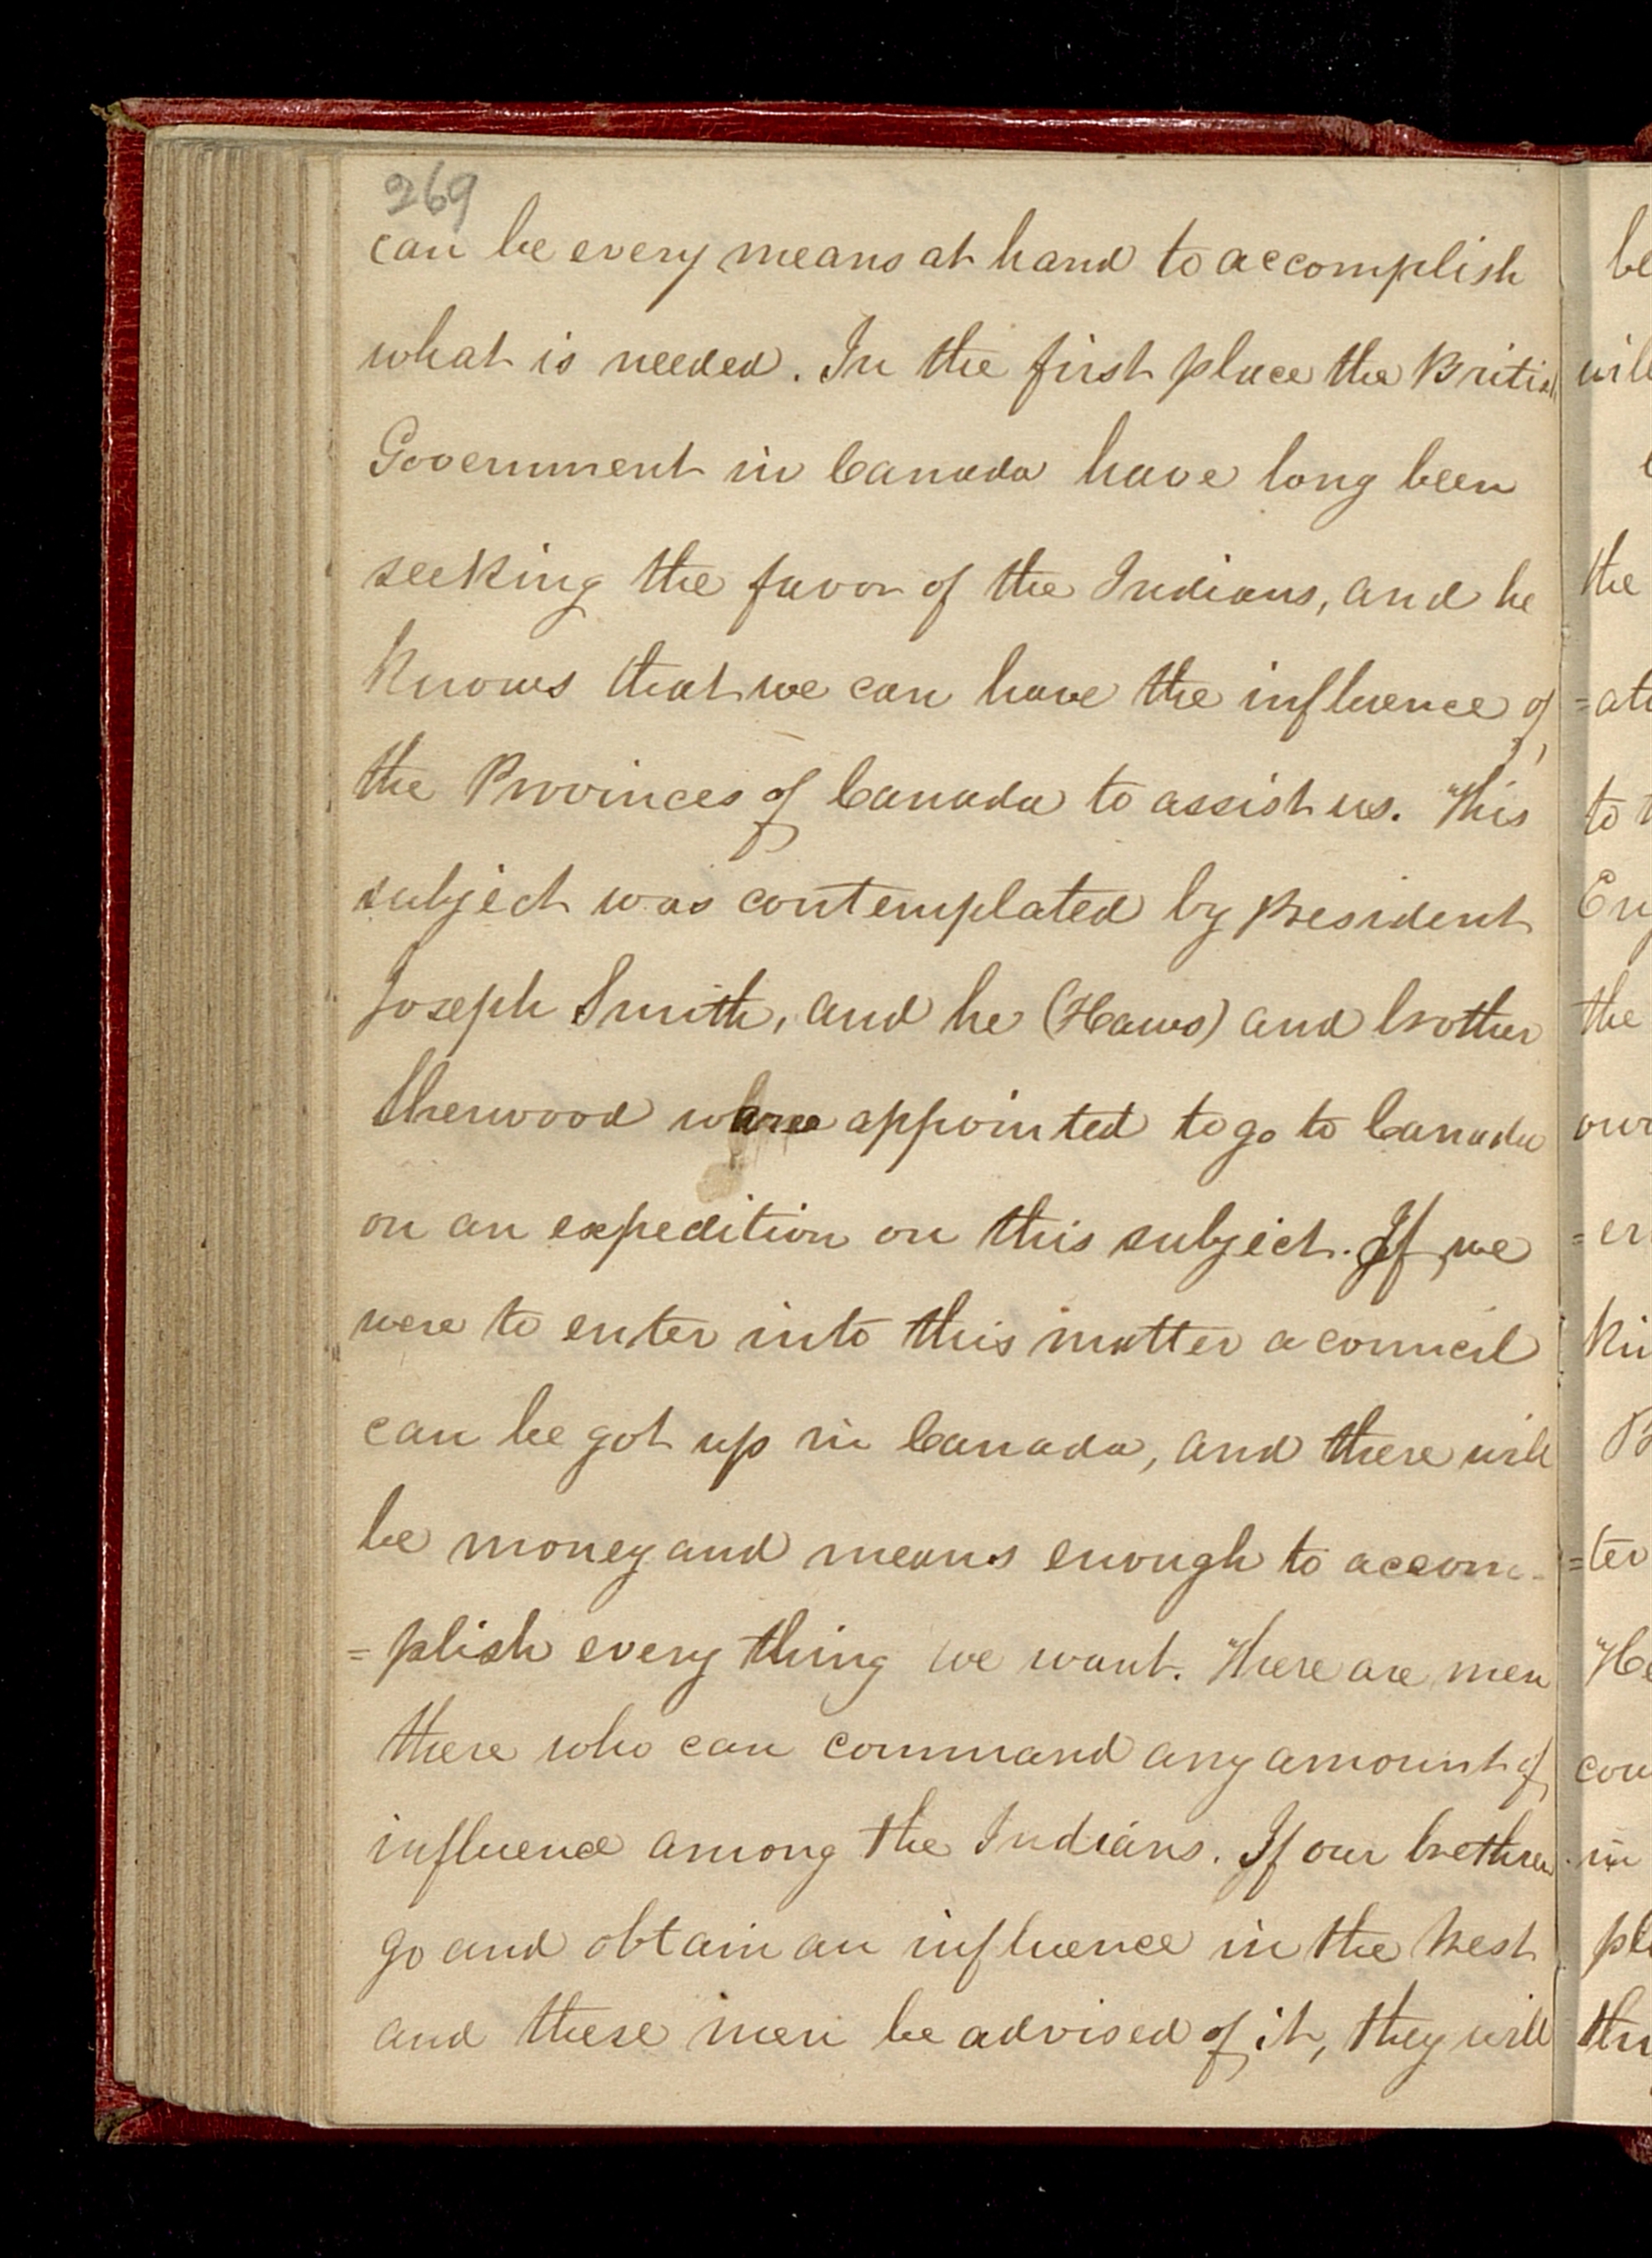 269
can be every means at hand to accomplish
what is needed. In the first place the British
Government in Canada have long been
seeking the favor of the Indians, and he
knows that we can have the influence of
the Provinces of Canada to assist us. This
subject was contemplated by president
Joseph Smith, and he (Haws) and brother
Sherwood were appointed to go to Canada
on an expedition on this subject. If we
were to enter into this matter a council
can be got up in Canada, and there will
be money and means enough to accom-
=plish every thing we want. There are men
there who can command any amount of
influence among the Indians. If our brethren
go and obtain an influence in the West
and these men be advised of it, they will
be
will
the
=at
to
the
our
=er
Ki
B
=ter
He
cou
in
pl